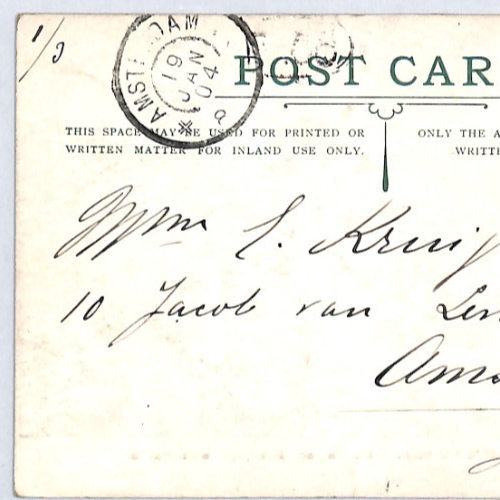 1/3
AMSTERDAM
19 JAN 04
a
POST CAR
THIS SPACE MAY BE USED FOR PRINTED OR
WRITTEN MATTER FOR INLAND USE ONLY.
ONLY THE A
WRITTE
E. Kruij
10 Jacob van Len
Ams